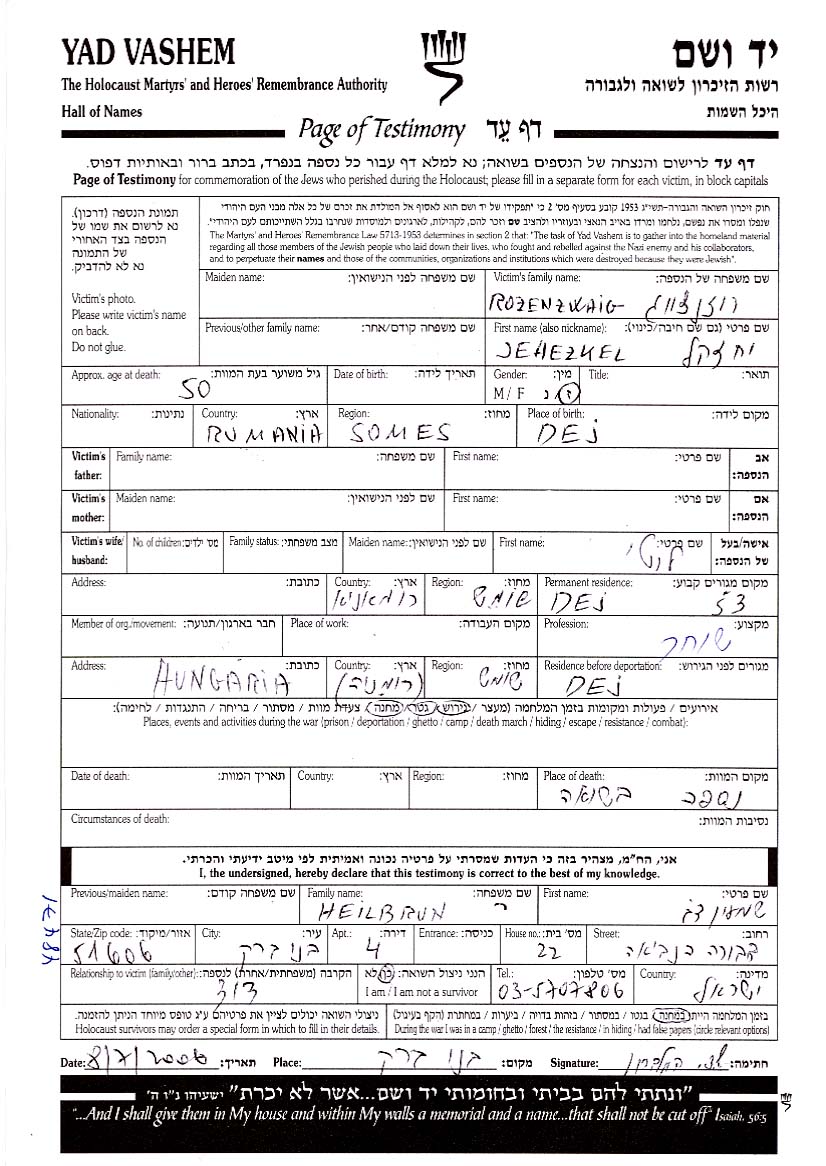 YAD VASHEM
יד ושם
The Holocaust Martyrs' and Heroes' Remembrance Authority
רשות הזיכרון לשואה ולגבורה
Hall of Names
היכל השמות
Page of Testimony דף עֵד
דף עד לרישום והנצחה של הנספים בשואה; נא למלא דף עבור כל נספה בנפרד, בכתב ברור ובאותיות דפוס.
Page of Testimony for commemoration of the Jews who perished during the Holocaust; please fill in a separate form for each victim, in block capitals
תמונת הנספה (דרכון).
נא לרשום את שמו של
הנספה בצד האחורי
של התמונה
נא לא להדביק.
Victim's photo.
Please write victim's name
on back.
Do not glue.
חוק זיכרון השואה והגבורה-תשי"ג 1953 קובע בסעיף מס' 2 כי "תפקידו של יד ושם הוא לאסוף אל המולדת את זכרם של כל אלה מבני העם היהודי
שנפלו ומסרו את נפשם, נלחמו ומרדו באויב הנאצי ובעוזריו ולהציב שם וזכר להם, לקהילות, לארגונים ולמוסדות שנחרבו בגלל השתייכותם לעם היהודי".
The Martyrs' and Heroes' Remembrance Law 5713-1953 determines in section 2 that: "The task of Yad Vashem is to gather into the homeland material
regarding all those members of the Jewish people who laid down their lives, who fought and rebelled against the Nazi enemy and his collaborators,
and to perpetuate their names and those of the communities, organizations and institutions which were destroyed because they were Jewish".
Maiden name: שם משפחה לפני הנישואין: Victim's family name: שם משפחה של הנספה:
ROZENZWAIG רוזנצוויג
Previous/other family name: שם משפחה קודם/אחר: First name (also nickname): שם פרטי (גם שם חיבה/כינוי):
JEHEZKEL יחזקל
Approx. age at death: גיל משוער בעת המוות: Date of birth: תאריך לידה: Gender: מין: Title: תואר:
50 M / F ז נ
Nationality: נתינות: Country: ארץ: Region: מחוז: Place of birth: מקום לידה:
RUMANIA SOMES DEJ
Victim's father: Family name: שם משפחה: First name: שם פרטי: אב הנספה:
Victim's mother: Maiden name: שם לפני הנישואין: First name: שם פרטי: אם הנספה:
Victim's wife/ husband: No. of children: מס' ילדים: Family status: מצב משפחתי: Maiden name: שם לפני הנישואין: First name: שם פרטי: אישה/בעל של הנספה:
Address: כתובת: Country: ארץ: Region: מחוז: Permanent residence: מקום מגורים קבוע:
רומאניא שומש DEJ
Member of org./movement: חבר בארגון/תנועה: Place of work: מקום העבודה: Profession: מקצוע:
שוחר
Address: כתובת: Country: ארץ: Region: מחוז: Residence before deportation: מגורים לפני הגירוש:
HUNGARIA (רומניה) שומש DEJ
אירועים / פעולות ומקומות בזמן המלחמה (מעצר / גירוש / גטו / מחנה / צעדת מוות / מסתור / בריחה / התנגדות / לחימה):
Places, events and activities during the war (prison / deportation / ghetto / camp / death march / hiding / escape / resistance / combat):
Date of death: תאריך המוות: Country: ארץ: Region: מחוז: Place of death: מקום המוות:
נספה בשואה
Circumstances of death: נסיבות המוות:
אני, הח"מ, מצהיר בזה כי העדות שמסרתי על פרטיה נכונה ואמיתית לפי מיטב ידיעתי והכרתי.
I, the undersigned, hereby declare that this testimony is correct to the best of my knowledge.
Previous/maiden name: שם משפחה קודם: Family name: שם משפחה: First name: שם פרטי:
HEILBRUN שמעון צבי
State/Zip code: אזור/מיקוד: City: עיר: Apt.: דירה: Entrance: כניסה: House no.: מס' בית: Street: רחוב:
51606 בני ברק 4 22 דבורה הנביאה
Relationship to victim (family/other): הקרבה (משפחתית/אחרת) לנספה: הנני ניצול השואה: כן/לא Tel.: מס' טלפון: Country: מדינה:
דוד I am / I am not a survivor 03-5707806 ישראל
ניצולי השואה יכולים לציין את פרטיהם ע"ג טופס מיוחד הניתן להזמנה.
Holocaust survivors may order a special form in which to fill in their details.
בזמן המלחמה הייתי במחנה / בגטו / במסתור / בזהות בדויה / ביערות / במחתרת (הקף בעיגול)
During the war I was in a camp / ghetto / forest / the resistance / in hiding / had false papers (circle relevant options)
Date: 8/7/2006 תאריך: Place: בני ברק מקום: Signature: חתימה:
"ונתתי להם בביתי ובחומותי יד ושם...אשר לא יכרת" ישעיהו נ"ו ה'
"...And I shall give them in My house and within My walls a memorial and a name...that shall not be cut off" Isaiah, 56:5